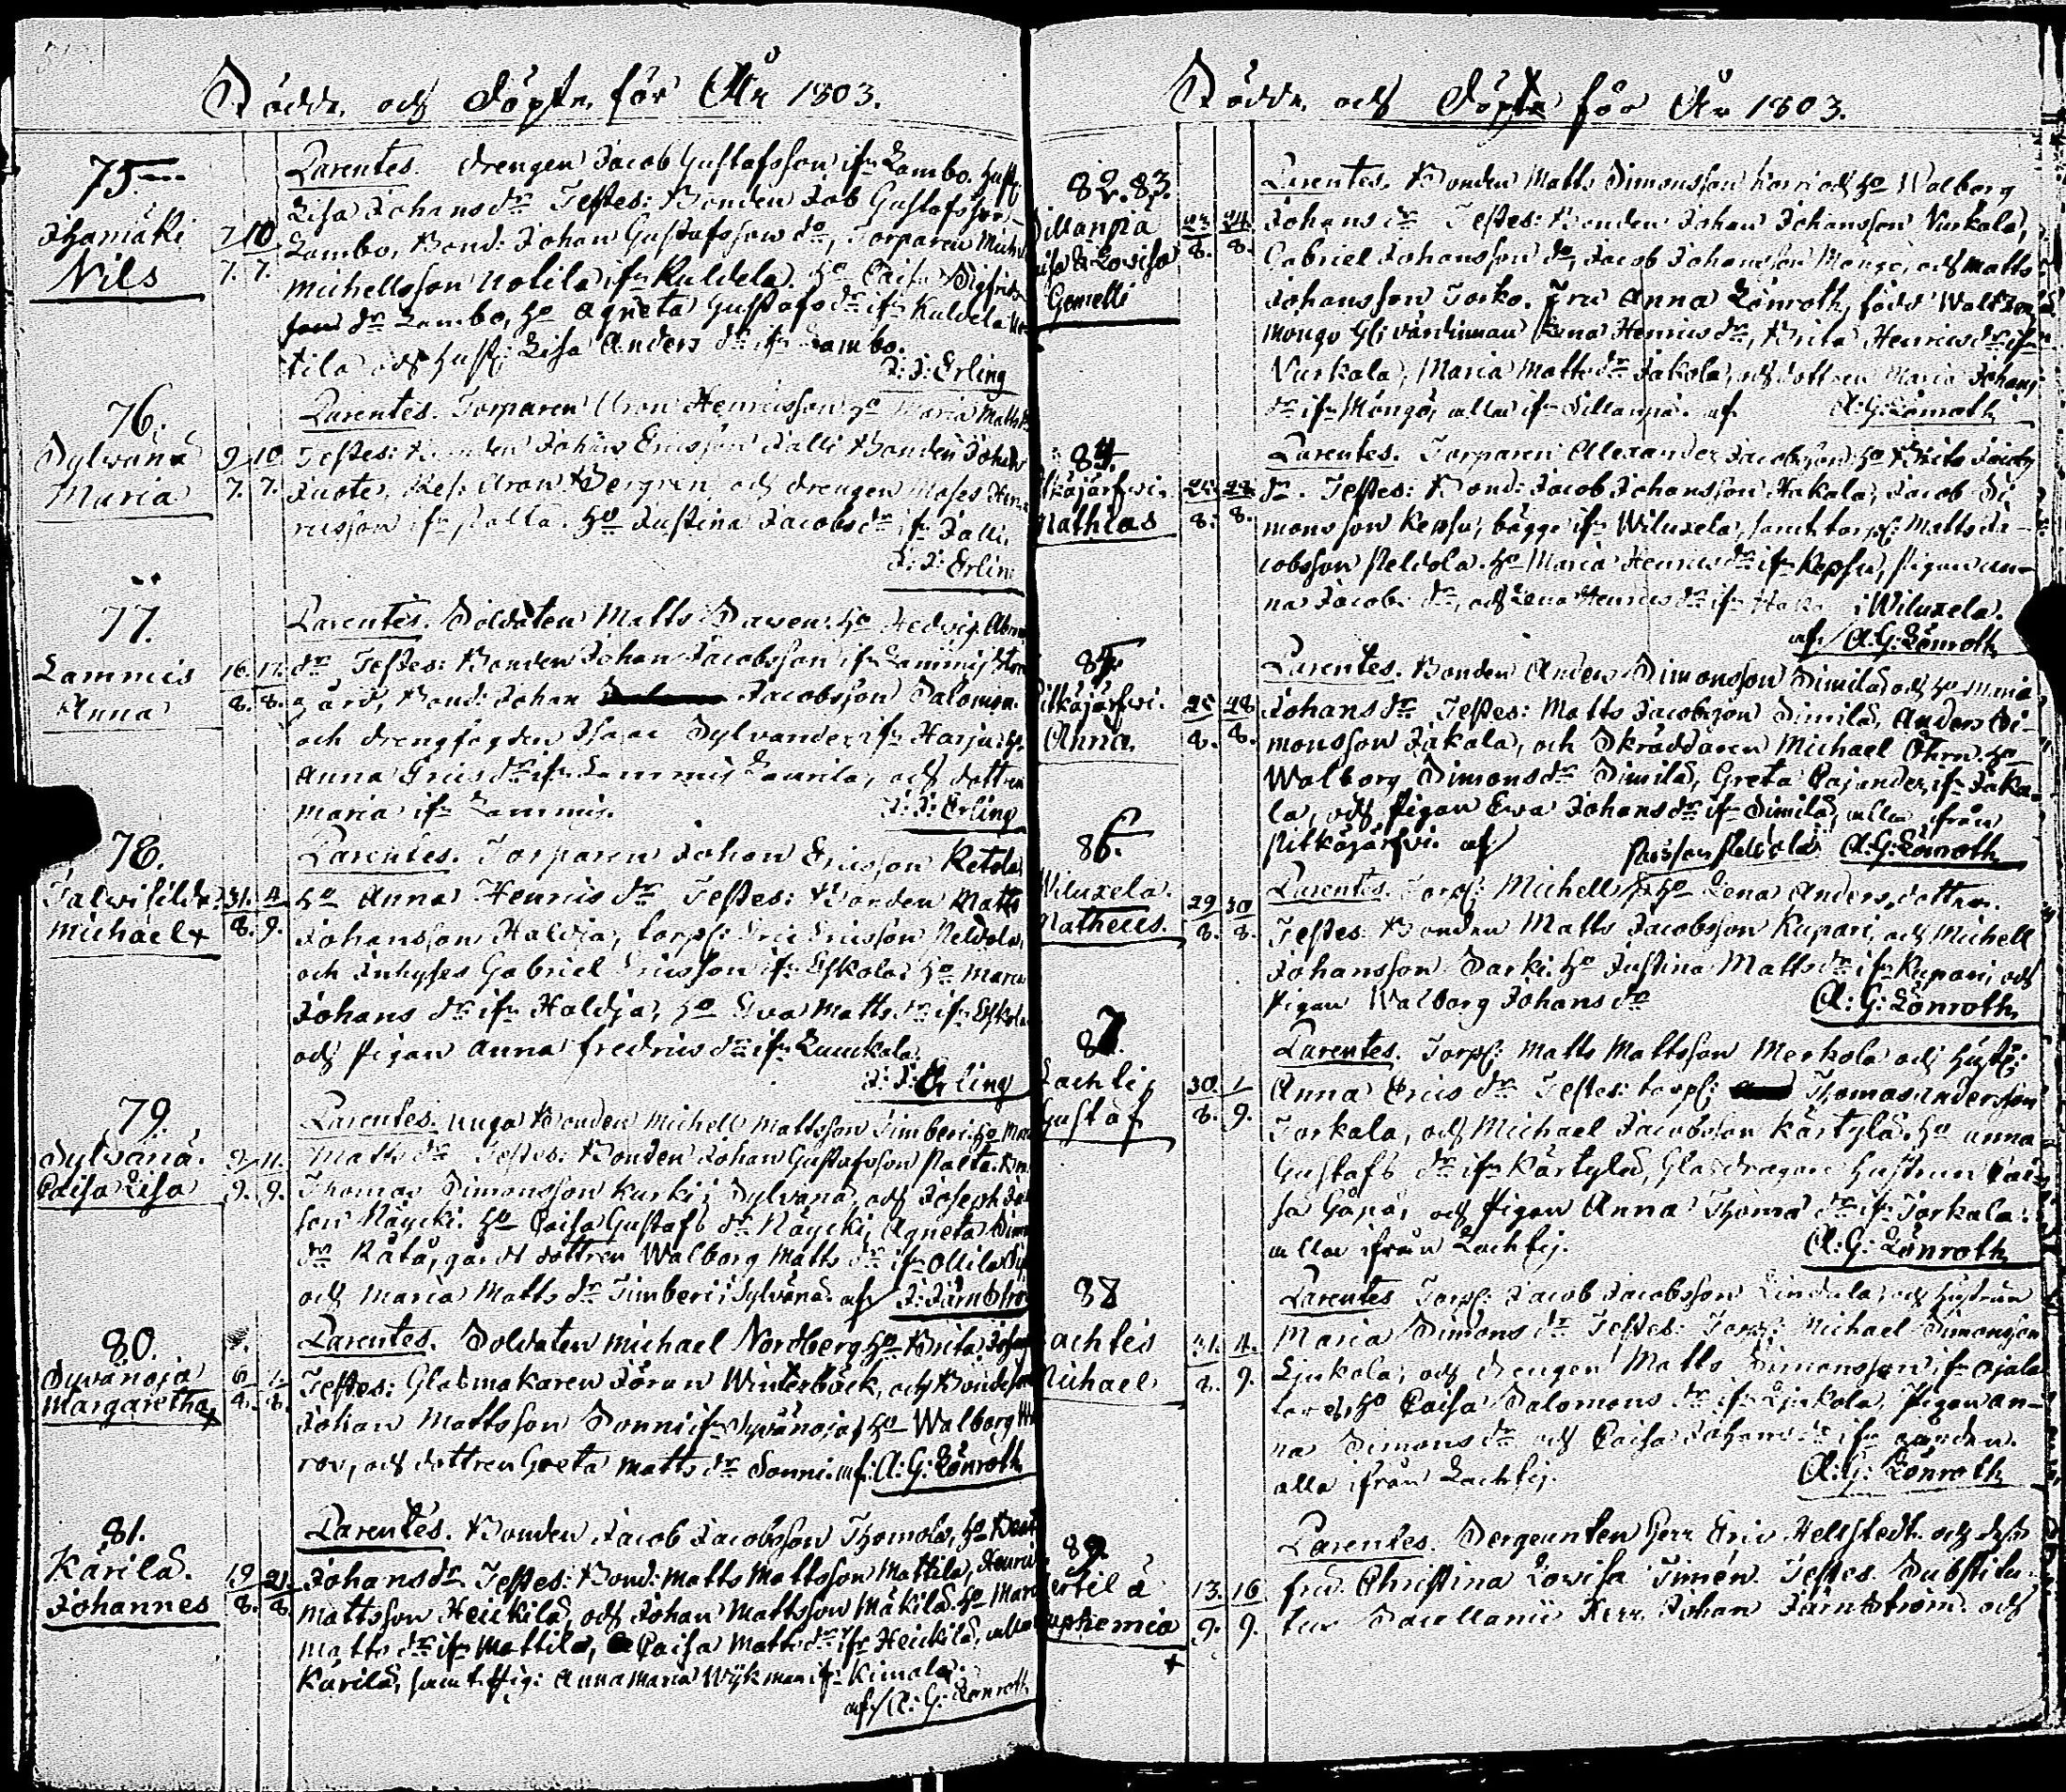 Födde och Döpte för År 1803.
75
Ihamäki
Nils
7 10
7. 7.
Parentes. Drengen Jacob Gustafsson ifr Lambo. Hust.
Lisa Johans dr Testes: Bonden Job Gustafsson
Lambo, Bond: Johan Gustafsson do, Torparen Mich
Michellsson Uotila ifr Kuldela. Ho Caisa Sigfrids
dr Lambo, Ho Agneta Gustafs dr ifr Kuldela Uo
tila och Hust: Lisa Anders dr ifr Lambo.
J: J: Erling
76.
Sylvänä
Maria
9 10
7. 7.
Parentes. Torparen Aron Henricsson Ho Maria Matts
Testes: Bonden Johan Ericsson Jalli Bonden Johan
Aron Bergren och drengen Moses Hen
ricsson ifr Palta. Ho Justina Jacobs dr ifr Jalli.
J: J: Erlin
77.
Lammis
Anna
16. 17.
8. 8.
Parentes. Soldaten Matts Dawen Ho Hedvig Abra
dr Testes: Bonden Johan Jacobsson ifr Lammis
gård, Bond: Johan Jacobsson Salomon
och drengfogden Isaac Sylvander ifr Harju Ho
Anna Erics dr ifr Lammis Laurila, och dottren
Maria ifr Lammis.
J: J: Erling
78.
Talvisilda
Michael +
31. 4
8. 9.
Parentes. Torparen Johan Ericsson Ketola
Ho Anna Henrics dr Testes: Bonden Matts
Johansson Haldja, torp: Eric Ericsson Peldola,
och Inhyses Gabriel Ericsson ifr Eskola. Ho Maria
Johans dr ifr Haldja, Ho Eva Matts dr ifr Eskola
och Pigan Anna Fredrics dr ifr
J: J: Erling
79.
Sylvänä.
Caisa Lisa
9. 11.
9. 9.
Parentes. unga Bonden Michell Mattsson Timberi Ho Mar
Matts dr Testes: Bonden Johan Gustafsson Palta. Bn
Thomas Simonsson Kurki i Sylvänä, och Joseph
son Näycki. Ho Caisa Gustafs dr Näycki, Agneta Sim
dr Rätö, gårds dottren Walborg Matts dr ifr Ollila
och Maria Matts dr Timberi i Sylvänä. af J: Järnströ
80.
Syvänoja
Margaretha +
6
8. 8.
Parentes. Soldaten Michael Nordberg Ho Brita Joha
Testes: Glasmakaren Jöran Winterbäck, och Bondeson
Johan Mattsson Sonni ifr Syvänoja, Ho Walborg
ror, och dottren Greta Matts dr Sonni. af: A: G: Lönroth
81.
Karilå.
Johannes
19 21
8. 8.
Parentes. Bonden Jacob Jacobsson Thomola, Ho Beat
Johans dr Testes: Bond: Matts Mattsson Mattila, Henric
Mattsson Heickilä, och Johan Mattsson Mäkilä. Ho Mar
Matts dr ifr Mattila, Caisa Matts dr ifr Heickilä, alla
Karilä, samt Pig: Anna Maria Wijkman ifr Kimala.
af A: G: Lönroth
Födde och Döpte för År 1803.
82. 83.
Sillanpä
isa & Lovisa
Gemelli
23 24
8. 8.
Parentes. Bonden Matts Simonsson och Ho Walborg
Johans dr Testes: Bonden Johan Johansson Nurkala,
Gabriel Johansson do, Jacob Johansson Mongo, och Matts
Johansson Torko. Fru Anna Lönroth, född
Mongo Gl: värdinnan Lena Henrics dr, Brita Henrics dr ifr
Nurkala, Maria Matts dr Jakola, och dottren Maria Johans
dr ifr Mongo, alla ifr Sillanpä. af A: G: Lönroth
84.
tkäjärfvi.
Mathias
8. 8.
Parentes. Torparen Allexander Jacobsson Ho Brita Jacobs
dr. Testes: Bond: Jacob Johansson Hakala, Jacob Si
monsson Kepsu, bägge ifr Wiluxela, samt torp: Matts Ja-
cobsson Peldola. Ho Maria Henrics dr ifr Kepsu, Pigan An-
na Jacobs dr, och Lena Henrics dr ifr i Wiluxela.
af A: G: Lönroth
85
Pitkäjärfvi.
Anna.
25 28
8. 8.
Parentes. Bonden Anders Simonsson Similä och Ho Maria
Johans dr Testes: Matts Jacobsson Similä, Anders Si-
monsson Jakala, och Skräddaren Michael Öhrn. Ho
Walborg Simons dr Similä, Greta Cajander ifr Jaka-
la, och Pigan Ewa Johans dr ifr Similä, alla från
Pitkäjärfvi. af A: G: Lönroth
86.
Wiluxela.
Matheus.
29 30
8. 8.
Parentes. Torp: Michell Ho Lena Anders dotter.
Testes Bonden Matts Jacobsson Kupari, och Michell
Johansson Sarki. Ho Justina Matts dr ifr Kupari, och
Pigan Walborg Johans dr A: G: Lönroth
87.
Lachti
Gustaf
30. 1
8. 9.
Parentes. Torp: Matts Mattsson Merkola och Hust:
Anna Erics dr Testes: torp: Thomas Andersson
Torkala, och Michael Jacobsson Kärtylä. Ho Anna
Gustafs dr ifr Kärtylä, Glasdragare Hustrun Cai-
sa Gåpå, och Pigan Anna Thomas dr ifr Torkala.
alla ifrån Lachtis. A: G: Lönroth
88
Lachtis
Michael
31. 4.
8. 9.
Parentes Torp: Jacob Jacobsson Lindala, och Hustrun
Maria Simons dr Testes: Torp: Michael Simonsson
Ljukola, och drengen Matts Simonsson ifr Ojala
Ho Caisa Salomons dr ifr Ljukola, Pigan An-
na Simons dr och Caisa Johans dr ifr gården.
alla ifrån Lachtis. A: G: Lönroth
89.
ertilä
uphemia
+
13. 16
9. 9.
Parentes. Sergeanten Herr Eric Hellstedt och dess
fru Christina Lovisa Timén. Testes. Substitu-
tus Sacellanii Herr Johan Järnström. och